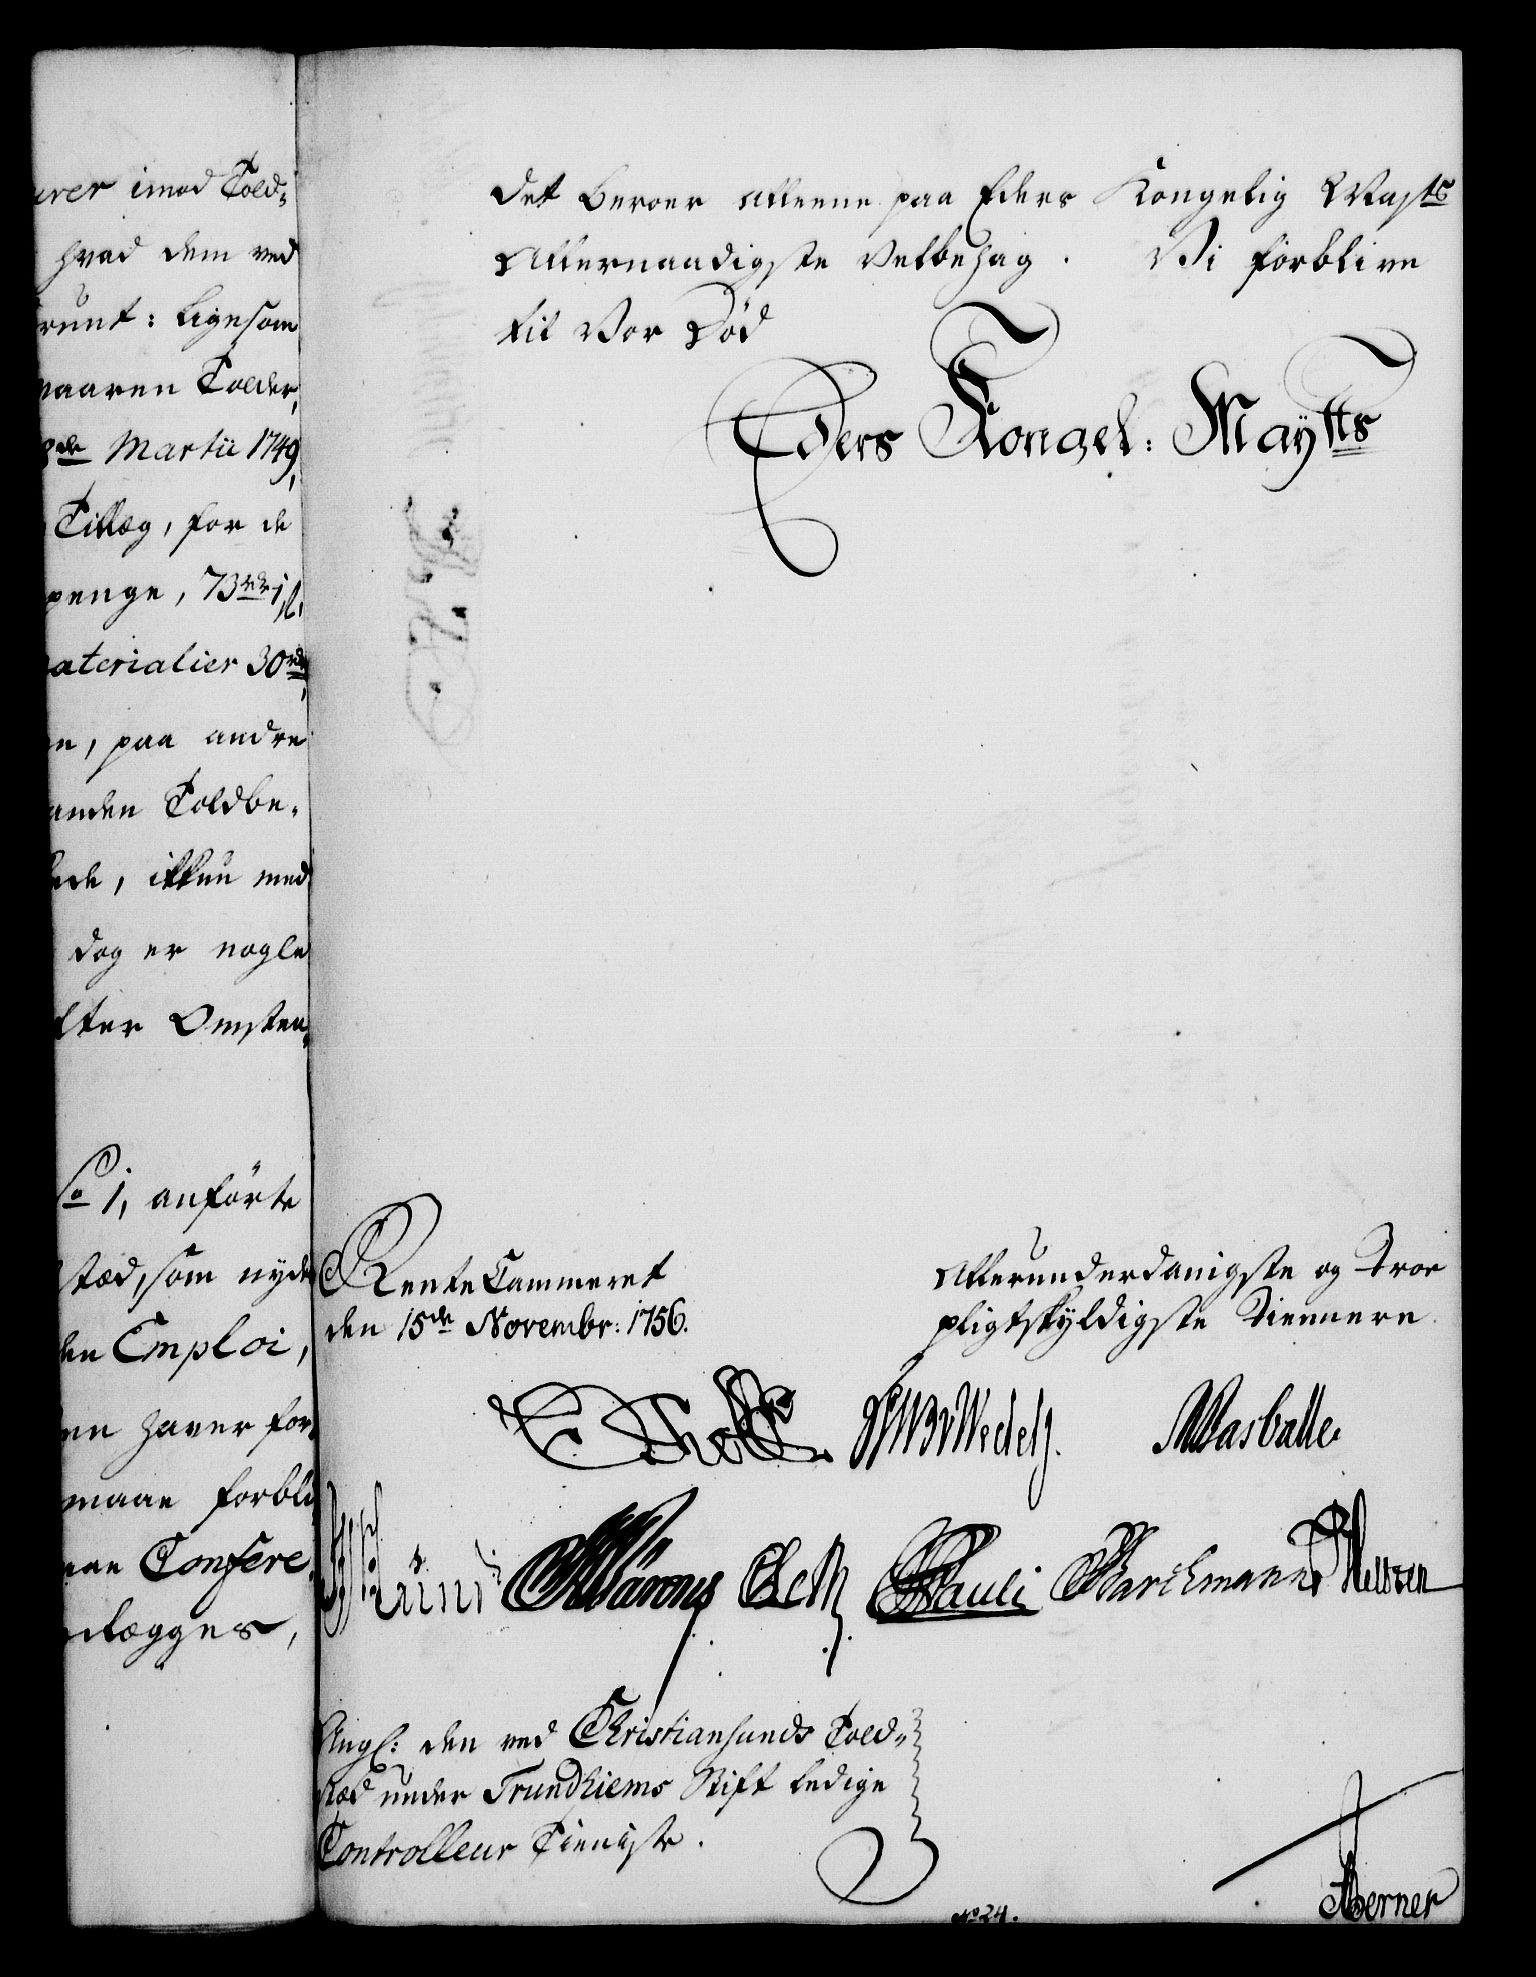 urer imod Told-
hvad dem ved
runt: ligesom
naaren Tolder,
8de Martii 1749,
Tillæg, for de
penge, 73rdr 1ß,
aterialier 30rdr,
en, paa andre
anden Toldbe-
ede, ikkun med
dog er nogle
fter Omsten-
So 1, anförte
stæd, som nyde
den Emploi,
en haver for
maae forbli
nae Confere
elægges,
Det beroer alleene paa Eders Kongelig Mayts
Allernaadigste Velbehag. Vi forblive
til vor Död
Eders Kongel: Maytts
Rente Cammeret
den 15de Novembr: 1756.
Allerunderdanigste og Troe
pligtskyldigste Tiennere.
E Holst. Wedelf. Masballe
Pauli Barchmann
Angl: den ved Christiansunds Told-
stæd under Trundhiems Stift ledige
Controlleur Tieniste.
No 24.
Berner